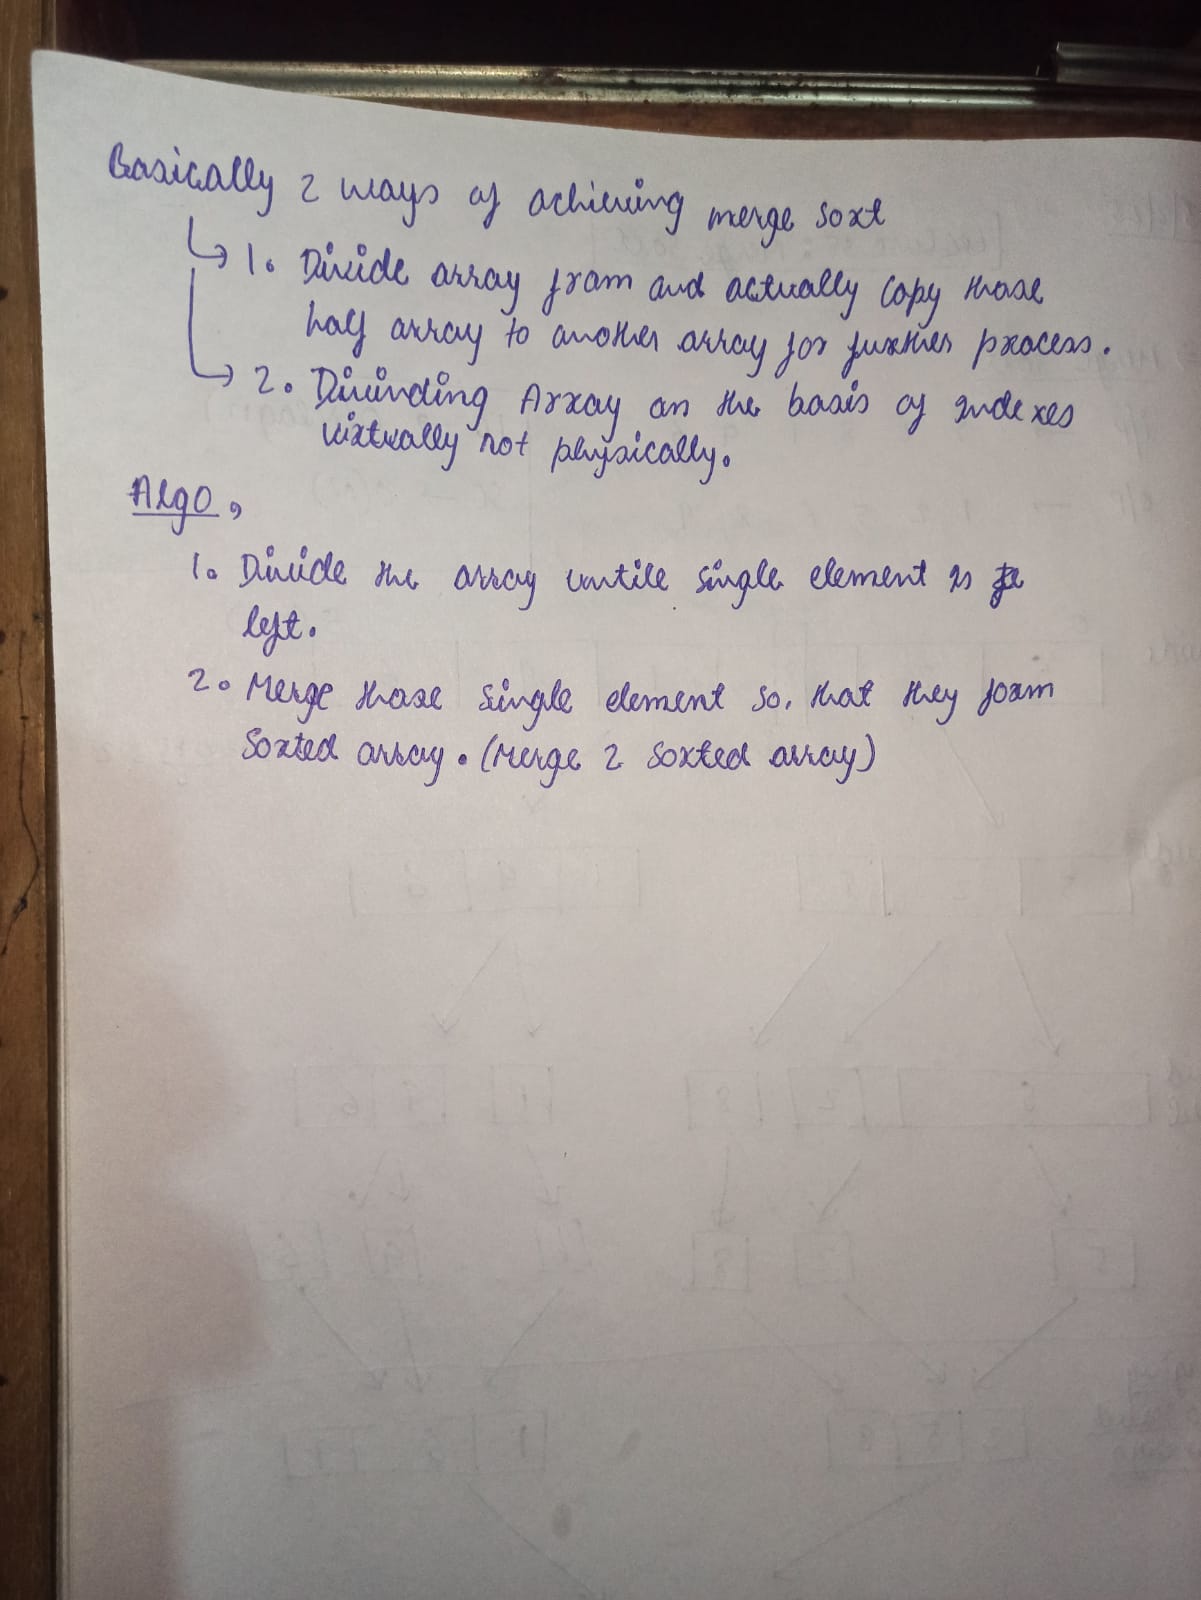 Basically 2 ways of achieving merge sort
1. Divide array from and actually copy those
half array to another array for further process.
2. Divinding Array on the basis of indexes
virtually not physically.
Algo,
1. Divide the array untile single element is
left.
2. Merge those single element so, that they form
sorted array. (Merge 2 sorted array)